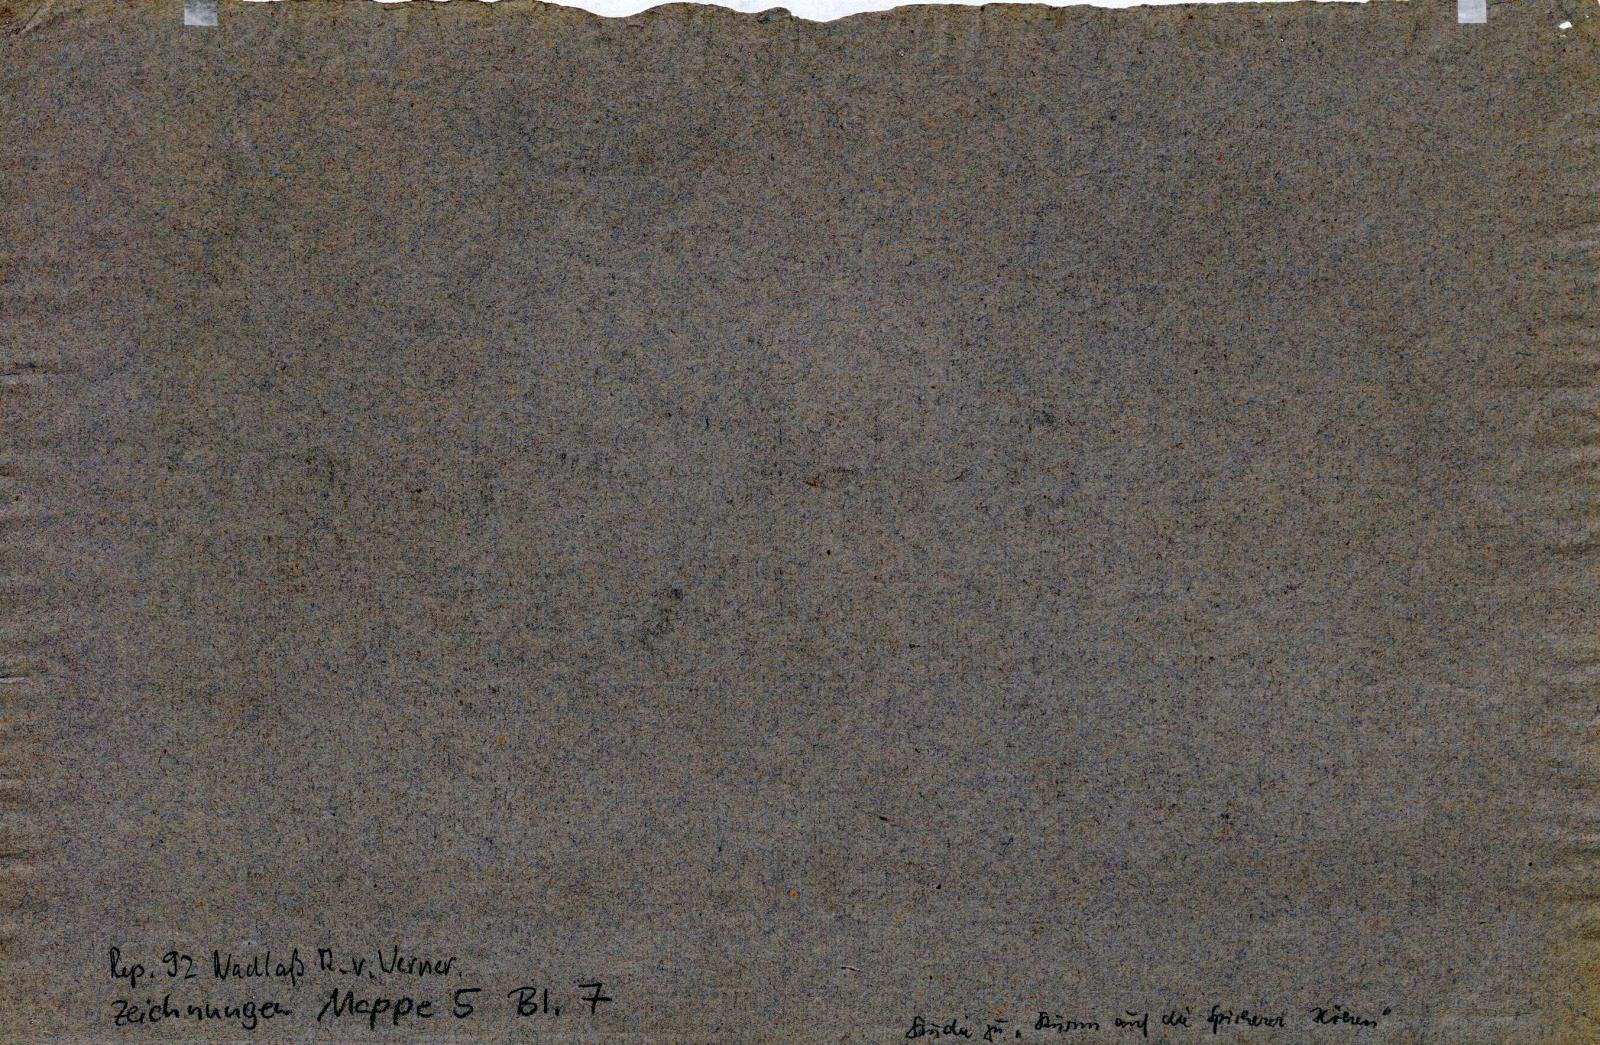 Rep. 92 Nachlaß A. v. Werner.
Zeichnungen Mappe 5 Bl. 7
Studie zu „Sturm auf die Spicherer Höhen"